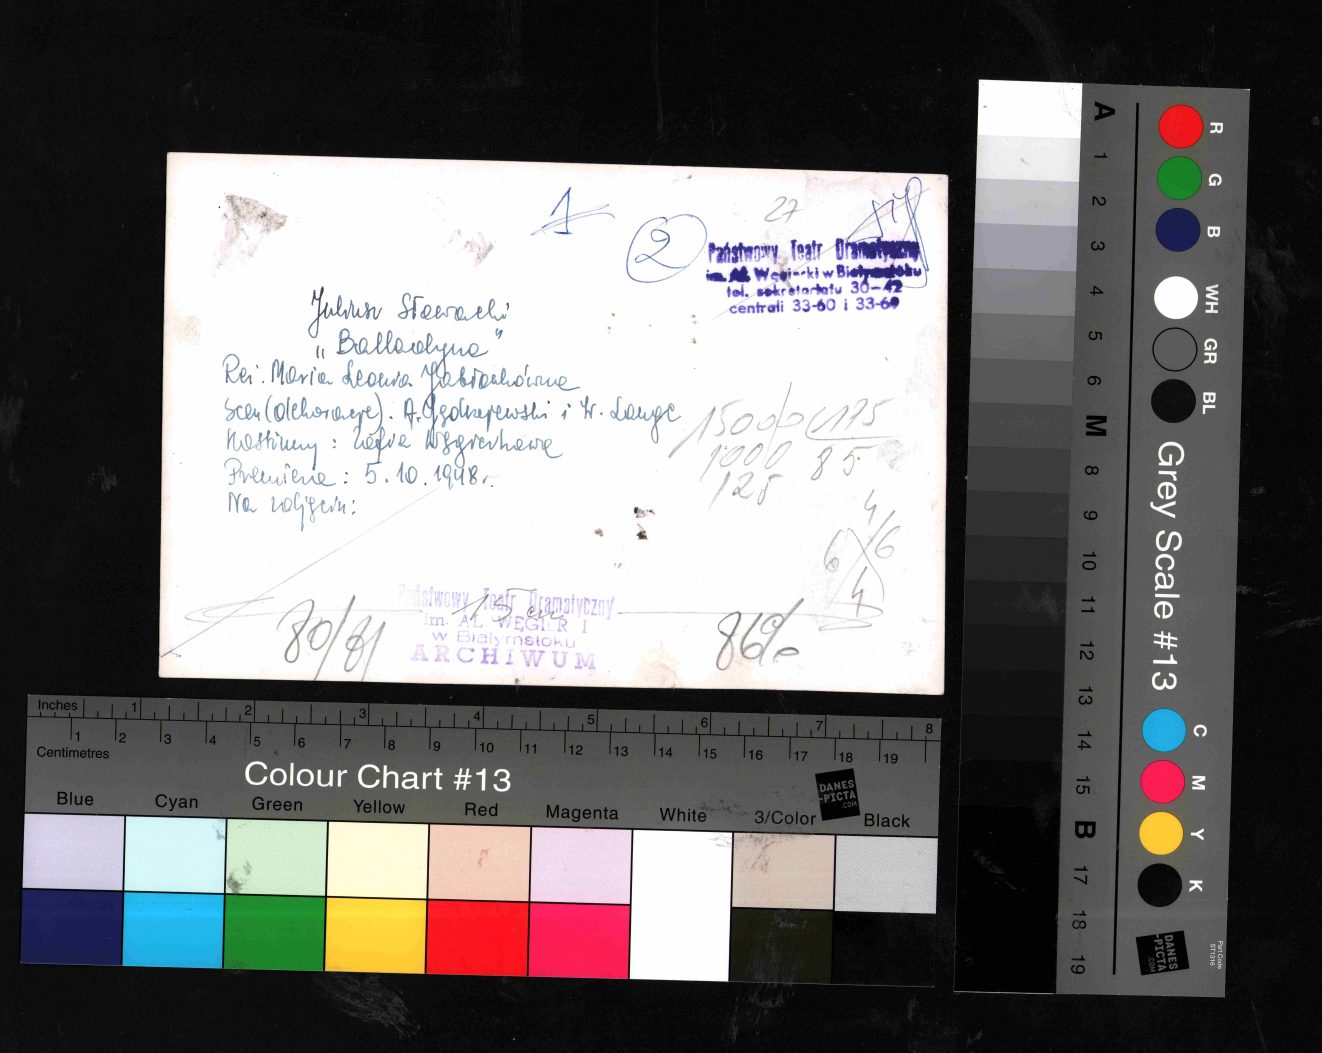 1
2
27
Państwowy Teatr Dramatyczny
im. Al. Węgierki w Białymstoku
tel. sekretariatu 30-42
centrali 33-60 i 33-69
Juliusz Słowacki
"Balladyna"
Reż. Maria Leonia Jabłonkówna
Scen (dekoracje). A. Jędrzejewski i W. Lange
Kostiumy: Zofia Węgierkowa
Premiera: 5.10.1948r.
Na zdjęciu:
15000 175
1000 85
125
4/6
6
4
Państwowy Teatr Dramatyczny
15 cm
im. AL WĘGIER I
w Białymstoku
ARCHIWUM
80/81
86%
Inches 1 2 3 4 5 6 7 8
1 2 3 4 5 6 7 8 9 10 11 12 13 14 15 16 17 18 19
Centimetres
Colour Chart #13
DANES
-PICTA
.COM
Blue Cyan Green Yellow Red Magenta White 3/Color Black
A 1 2 3 4 5 6 M 8 9 10 11 12 13 14 15 B 17 18 19
R G B WH GR BL
Grey Scale #13
C M Y K
DANES
-PICTA
.COM
Part Code
ST1316